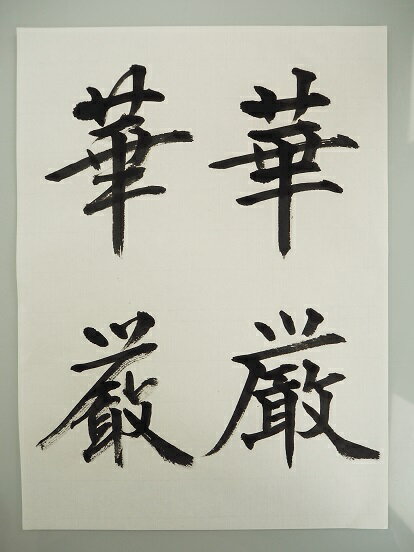 華厳
華厳